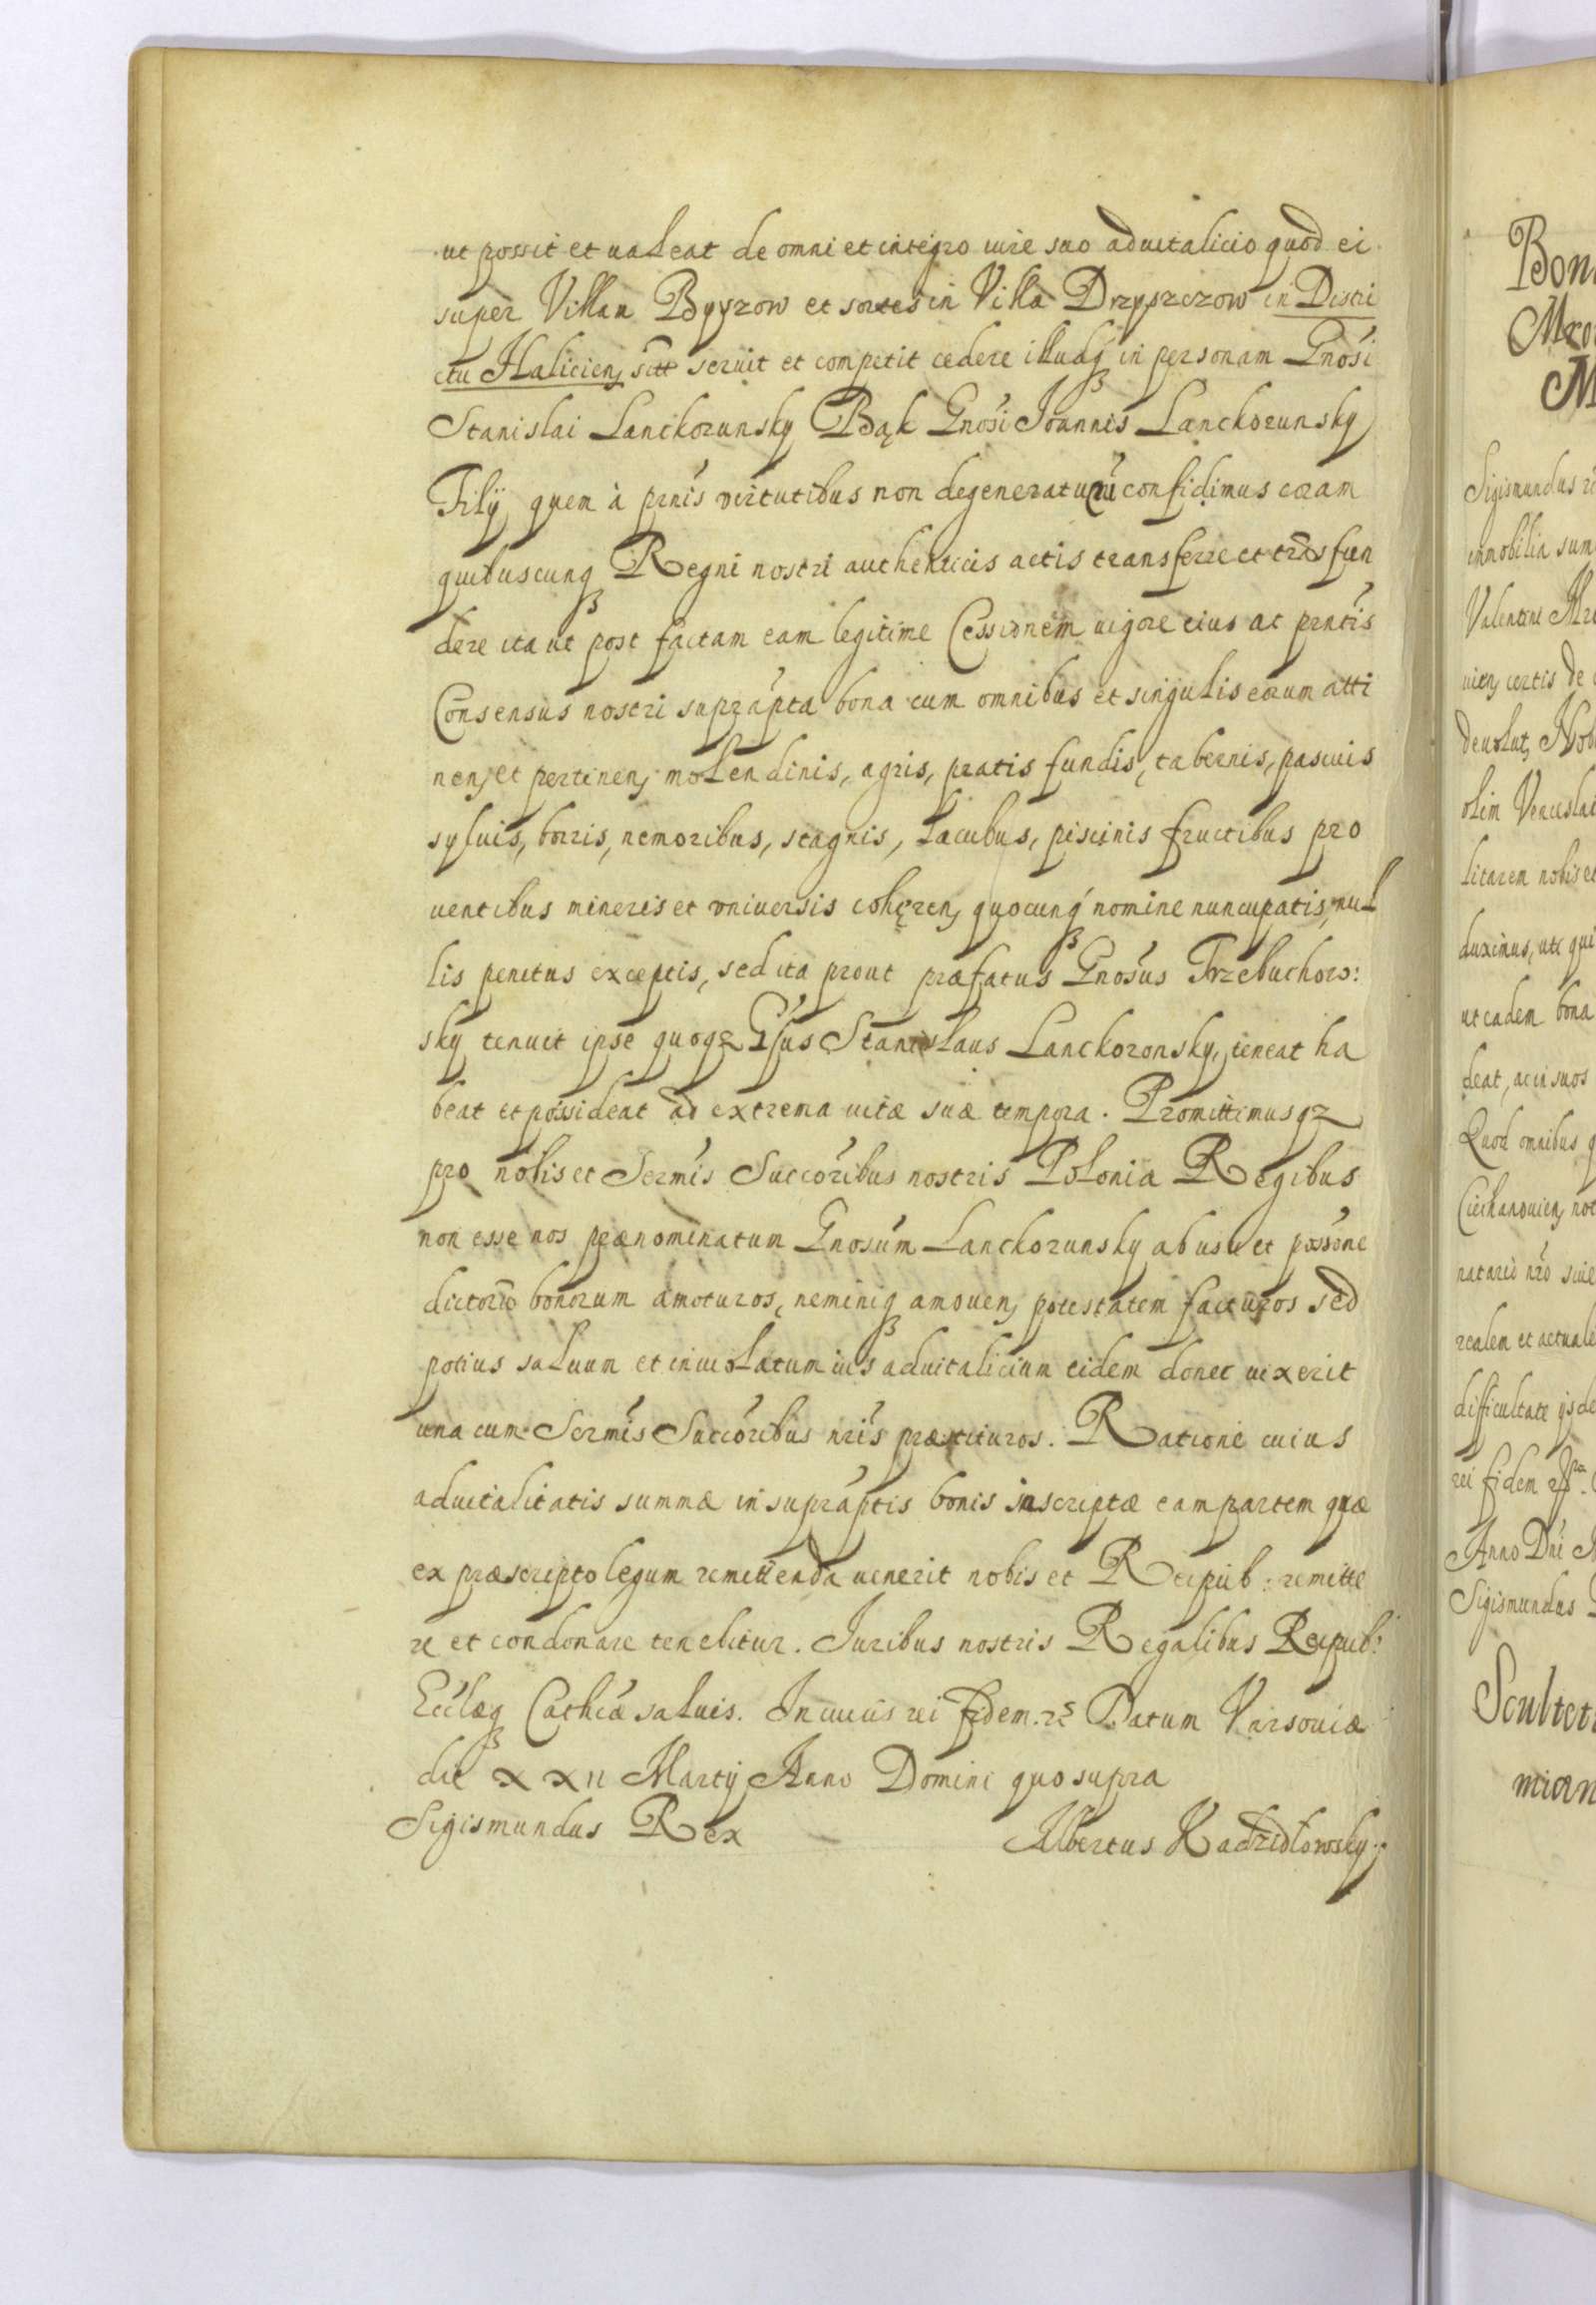 ut possit et ualeat de omni et integro iure suo aduitalicio quod ei
super Villam Byszow et sortes in Villa Drzyszczow in Distri
ctu Halicien, sitt seruit et competit cedere illudq in personam Gnosi
Stanislai Lanckorunsky Bąk Gnosi Joannis Lanckorunsky
Filÿ quem à prnis virtutibus non degeneraturu confidimus coram
quibuscunq Regni nostri authenticis actis transferre et trãsfun
dere ita ut post factam eam legitime Cessionem uigore eius ac prntis
Consensus nostri suprapta bona cum omnibus et singulis eorum atti
nen, et pertinen, molendinis, agris, pratis fundis, tabernis, pascuis
syluis, borris, nemoribus, stagnis, lacubus, piscinis fructibus pro
uentibus mineris et vniuersis cohęren, quocunq nomine nuncupatis, nul
lis penitus exceptis, sed ita prout præfatus Gnosus Trzebuchow:
sky tenuit ipse quoqz Gsus Stanislaus Lanckoronsky, teneat ha
beat et possideat ad extrema uitæ suæ tempora. Promittimusqz
pro nobis et Sermis Succoribus nostris Polonia Regibus
non esse nos prænominatum Gnosum Lanckorunsky ab usu et possone
dictorū bonorum amoturos, neminiq amouen, potestatem facturos sed
potius saluum et inuiolatum ius aduitalicium eidem donec uixerit
una cum Sermis Succoribus nris præstituros. Ratione cuius
aduitalitatis summæ in supraptis bonis inscriptæ eam partem quæ
ex præscripto legum remittenda uenerit nobis et Reipub: remitte
re et condonare tenebitur. Juribus nostris Regalibus Reipub:
Ecclæq Cathcæ saluis. In cuius rei fidem. rs Datum Varsouiæ
die XXII Martÿ Anno Domini quo supra
Sigismundus Rex Albertus Kadzidłowsky.